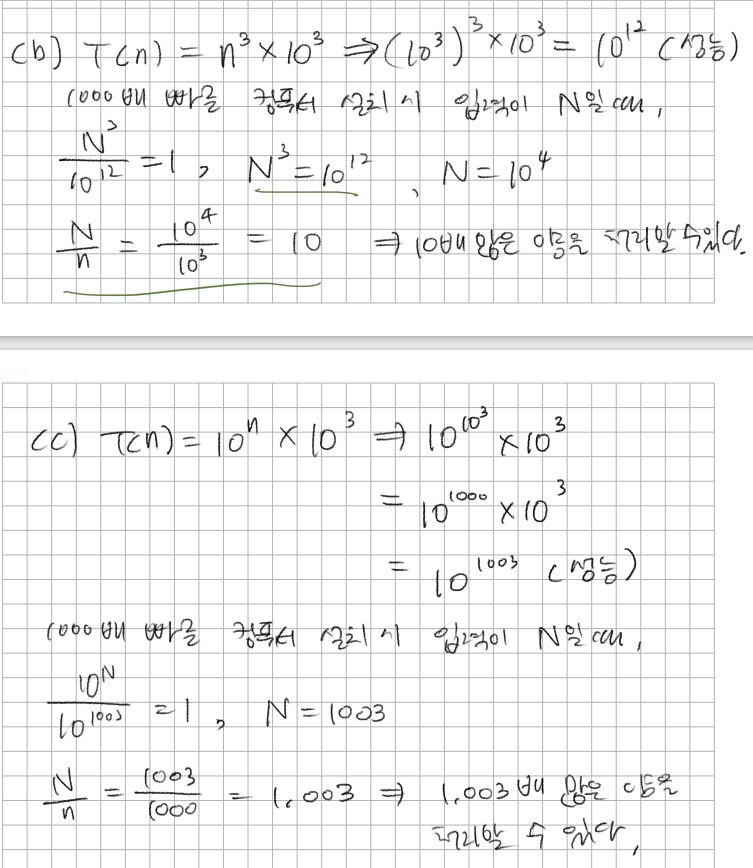 (b) T(n) = n³ × 10³ ⇒ (10³)³ × 10³ = 10¹² (성능)
1000배 빠를 컴퓨터 설치 시 입력이 N일 때,
N³/10¹² = 1, N³ = 10¹², N = 10⁴
N/n = 10⁴/10³ = 10 ⇒ 10배 많은 이름을 처리할 수 있다.
(c) T(n) = 10ⁿ × 10³ ⇒ 10^10³ × 10³
= 10¹⁰⁰⁰ × 10³
= 10¹⁰⁰³ (성능)
1000배 빠를 컴퓨터 설치 시 입력이 N일 때,
10ᴺ/10¹⁰⁰³ = 1, N = 1003
N/n = 1003/1000 = 1.003 ⇒ 1.003배 많은 이름을
처리할 수 있다.